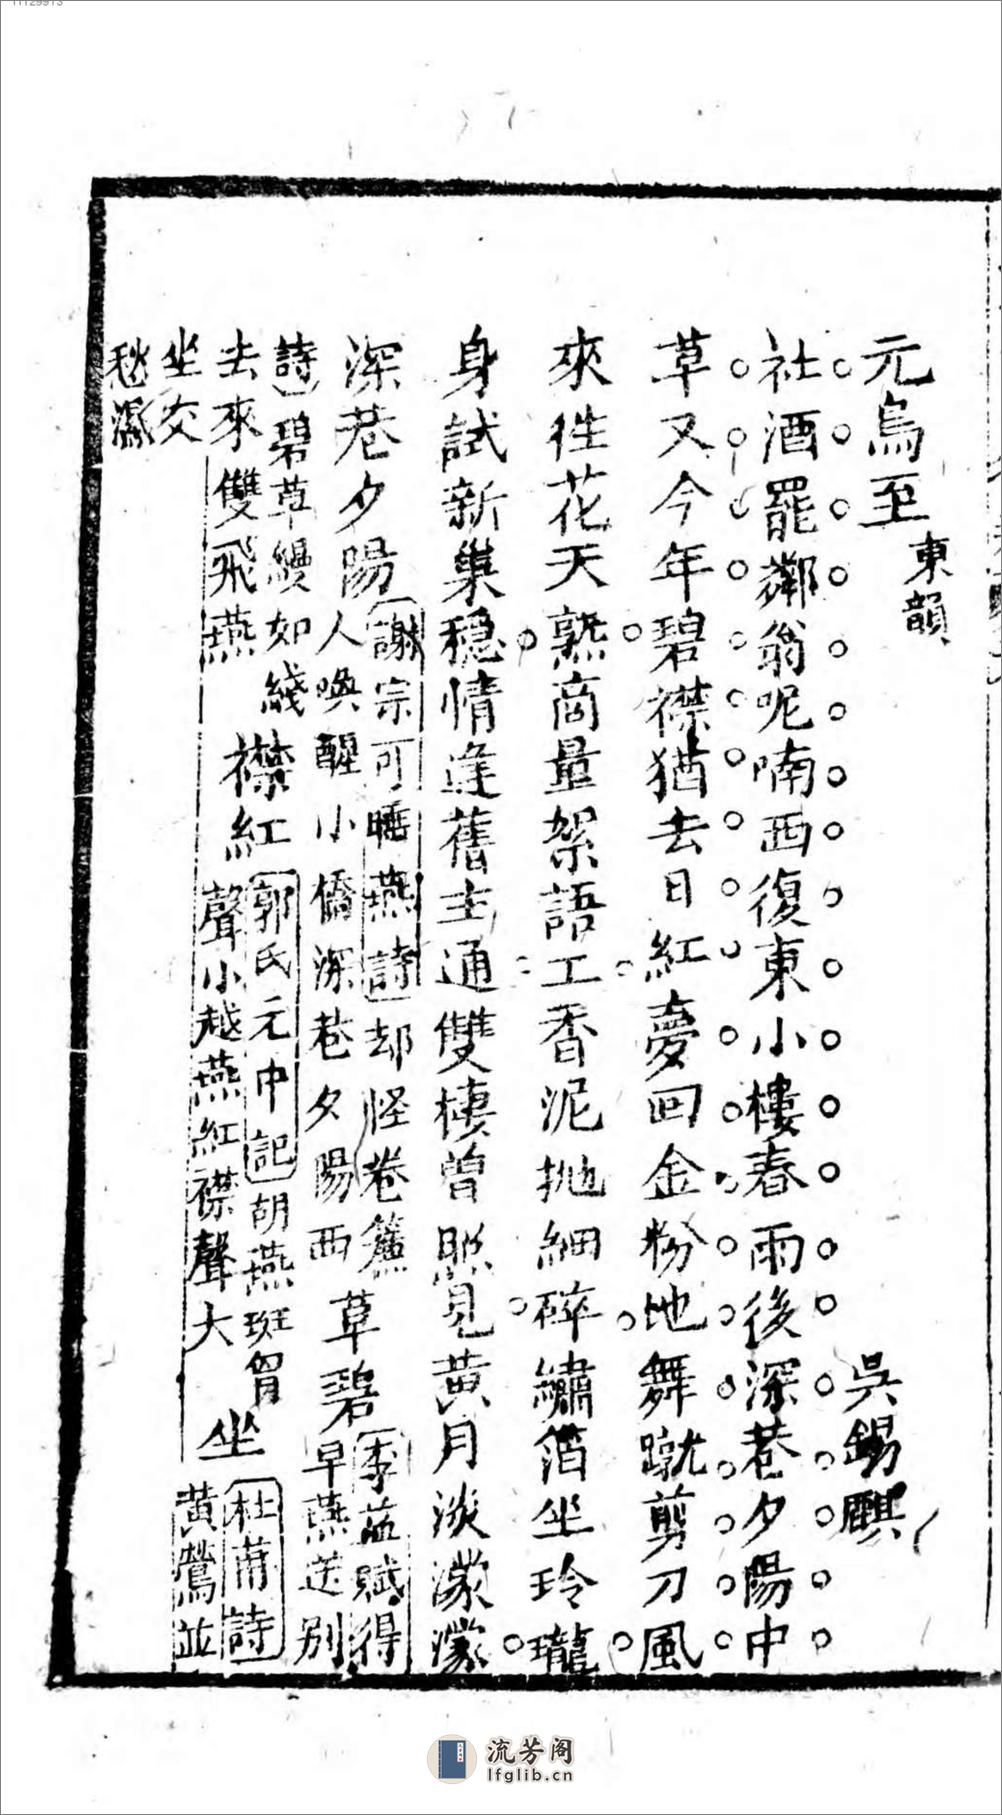 元鳥至 東韻 吳錫麒
社酒罷鄰翁呢喃西復東小樓春雨後深巷夕陽中
草又今年碧襟猶去日紅夢回金粉地舞蹴剪刀風
來往花天熟商量絮語工香泥拋細碎繡箔坐玲瓏
身試新巢穩情逢舊主通雙棲曾照見黃月淡濛濛
深巷夕陽 謝宗可睡燕詩 却怪卷簾
人喚醒小僑深巷夕陽西 草碧 李益賦得
早燕送別
詩 碧草縵如綫 襟紅 郭氏元中記 胡燕斑胷
聲小越燕紅襟聲大 坐 杜莆詩
黃鶯並
去來雙飛燕
坐交
愁濕
流芳阁
lfglib.cn
11129913